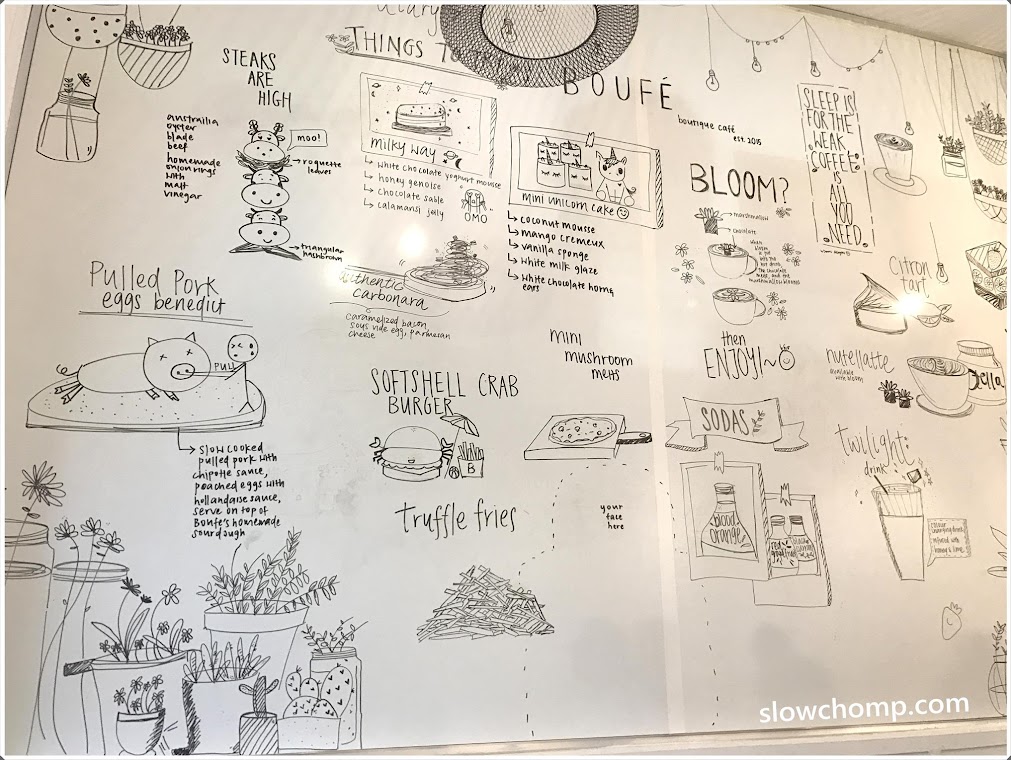 THINGS
BOUFÉ
boutique café
est. 2015
STEAKS
ARE
HIGH
moo!
australia
oyster
blade
beef
homemade
onion rings
with
malt
vinegar
roquette
leaves
triangular
hashbrown
milky way
white chocolate yoghurt mousse
honey genoise
chocolate sable
calamansi jelly
OMO
mini unicorn cake
coconut mousse
mango cremeux
vanilla sponge
white milk glaze
white chocolate horn &
ears
SLEEP IS
FOR THE
WEAK.
COFFEE
IS
ALL
YOU
NEED.
BLOOM?
marshmallow
chocolate
then
ENJOY!~
Citron
tart
Pulled Pork
eggs benedict
PULL
slow cooked
pulled pork with
chipotle sauce,
poached eggs with
hollandaise sauce,
serve on top of
Boufe's homemade
sourdough
authentic
carbonara
caramelized bacon,
sous vide egg, parmesan
cheese
mini
mushroom
melts
SOFTSHELL CRAB
BURGER
B
truffle fries
your
face
here
nutellatte
available
with bloom
ella
SODAS
blood
orange
twilight:
drink
colour
changing drink
infused with
honey & lime
slowchomp.com